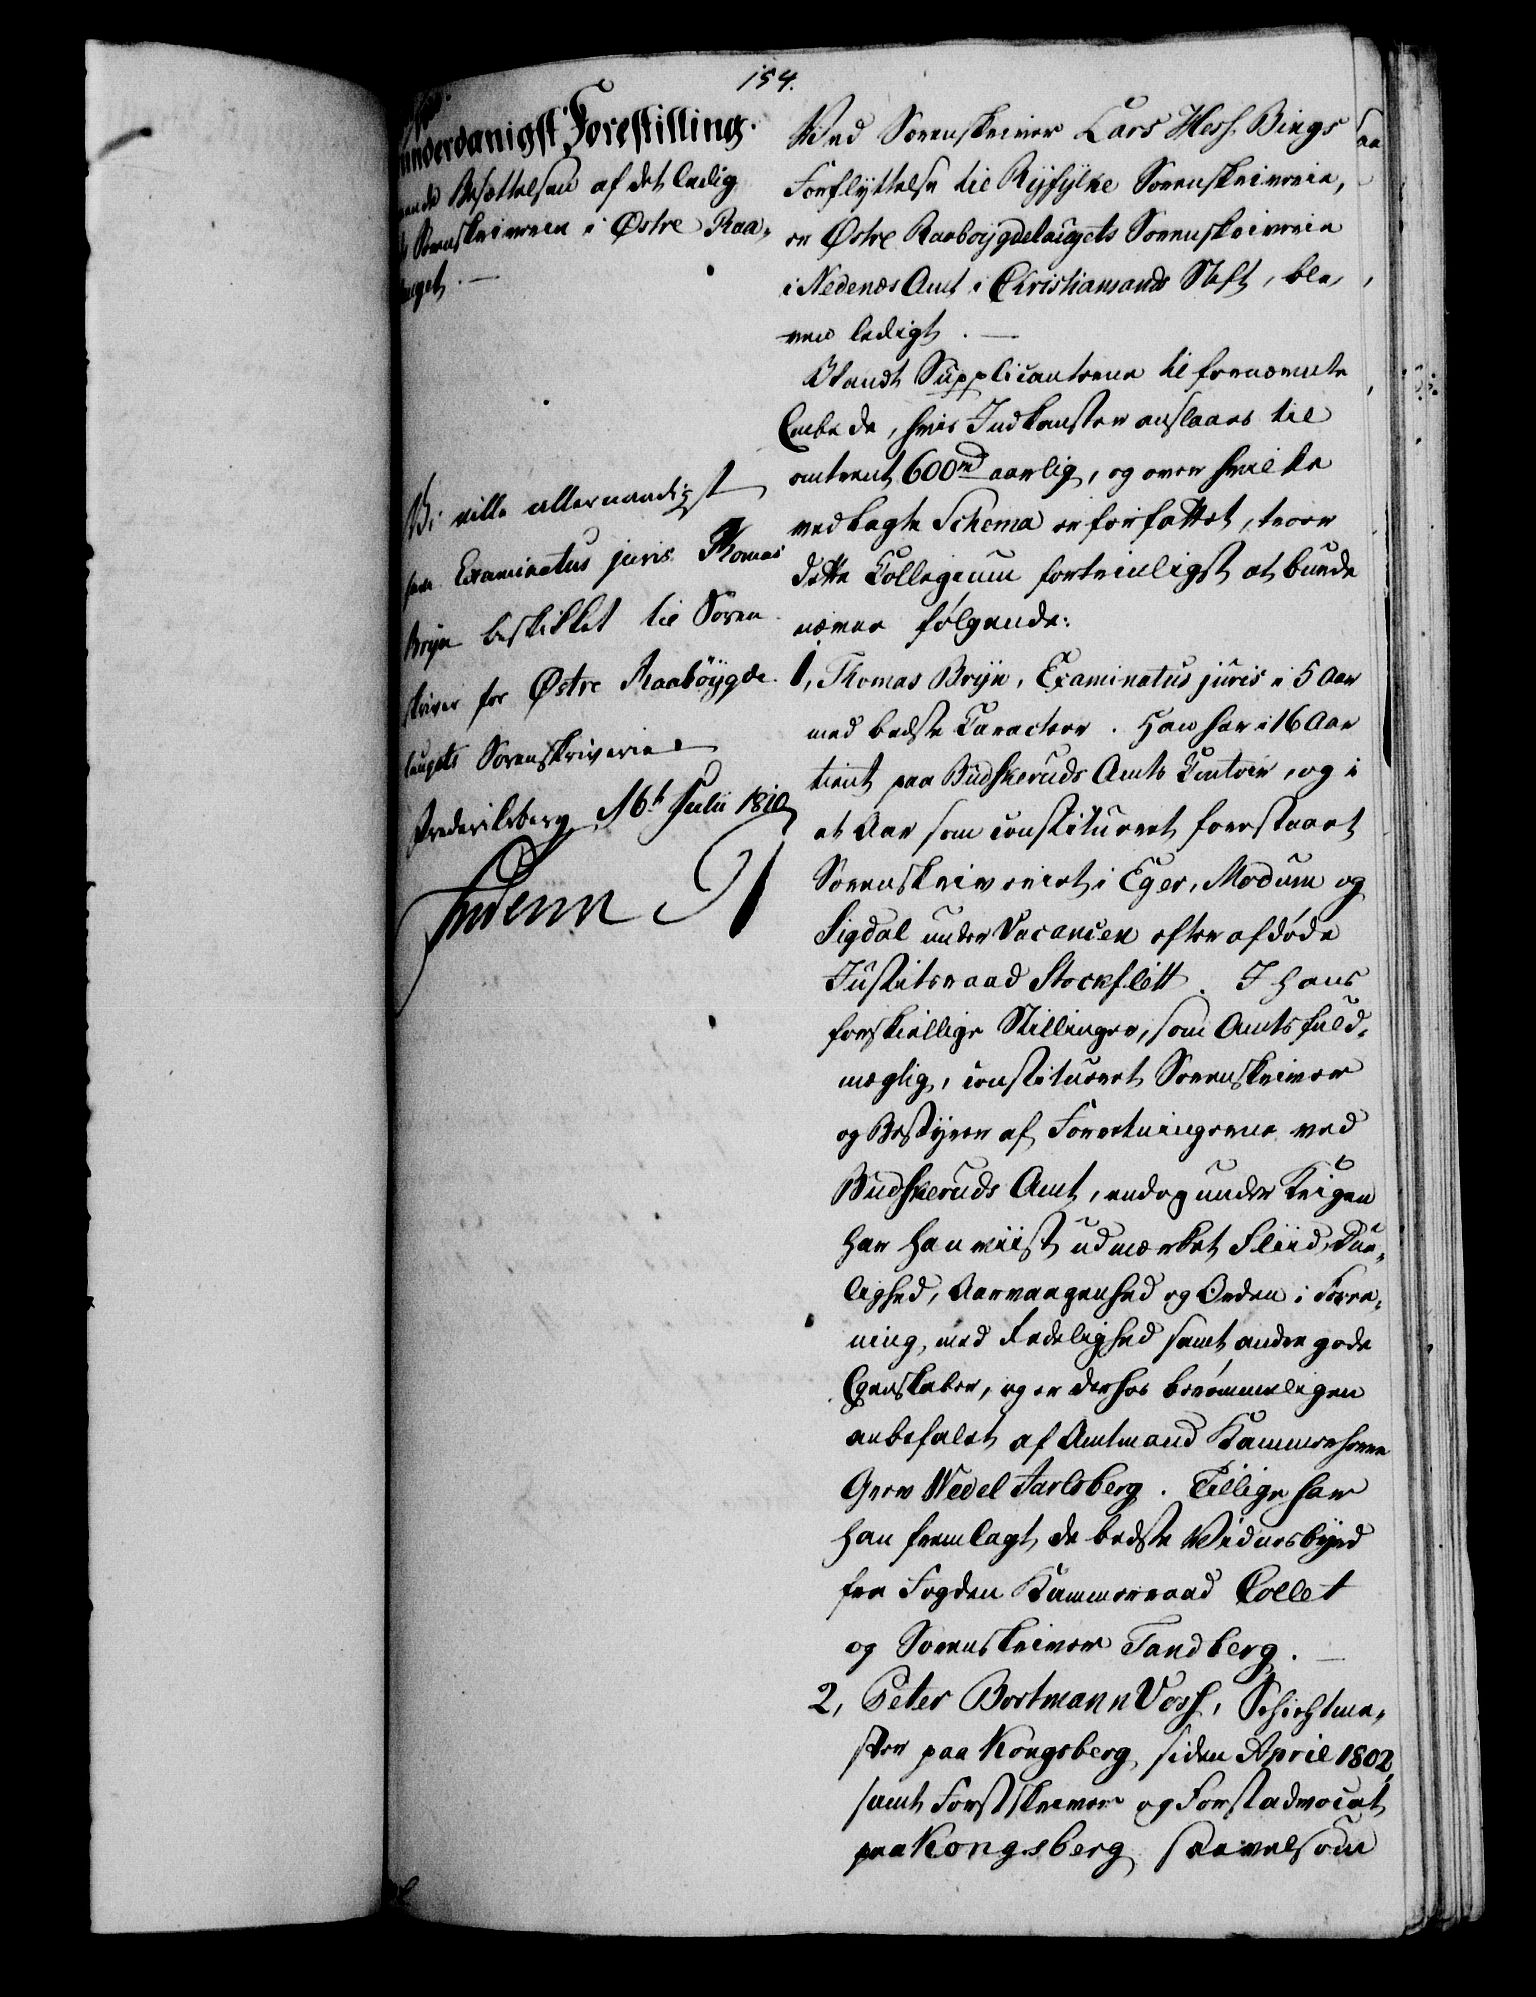 154.
underdanigst Forestilling.
Besættelsen af det ledig
Sorenskriverie i Østre Raa-
lauget. —
Vi ville allernaadigst
have Examinatus juris Thomas
Bryn beskikket til Soren
skriver for Østre Raabøygde
laugets Sorenskriverie.
Frederiksberg 16t Julii 1810
Ved Sorenskriver Lars Hess Bings
Forflyttelse til Ryfylke Sorenskriverie,
er Østre Raaboygdelaugets Sorenskriverie
i Nedenæs Amt i Christiansands Stift, ble-
ven ledigt. —
Blandt Supplicanterne til fornævnte
Embede, hvis Indkomster anslaaes til
omtrent 600rd aarlig, og over hvilke
vedlagte Schema er forfattet, troer
dette Collegium fortrinligst at burde
nævne følgende:
1, Thomas Bryn, Examinatus juris i 5 Aar
med bedste Caracteer. Han har i 16 Aar
tient paa Budskeruds Amts Contoir, og i
et Aar som constitueret forestaaet
Sorenskriveriet i Eger, Modum og
Sigdal under Vacancen efter afdøde
Justitsraad Stockflett. I hans
forskiellige Stillinger, som Amtsfuld-
mægtig, constitueret Sorenskriver
og Bestyrer af Forretningerne ved
Budskeruds Amt, endog under Krigen
har han viist udmærket Fliid, Due-
lighed, Aarvaagenhed og Orden i Forre-
ning, med Redelighed samt andre gode
Egenskaber, og er derhos berømmeligen
anbefalet af Amtmand Kammerherre
Grev Wedel Jarlsberg. Tillige har
han fremlagt de bedste Vidnesbyrd
fra Fogden Kammerraad Collet
og Sorenskriver Tandberg. —
2, Peter Bortmann Voss, Schichtme-
ster paa Kongsberg siden April 1802,
samt Forstskriver og Forstadvocat
paa Kongsberg saavelsom